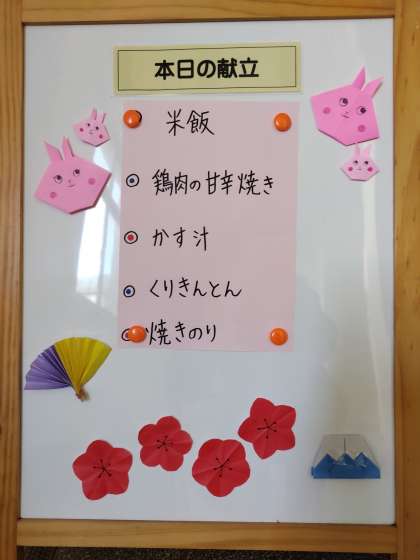 本日の献立
米飯
鶏肉の甘辛焼き
かす汁
くりきんとん
焼きのり